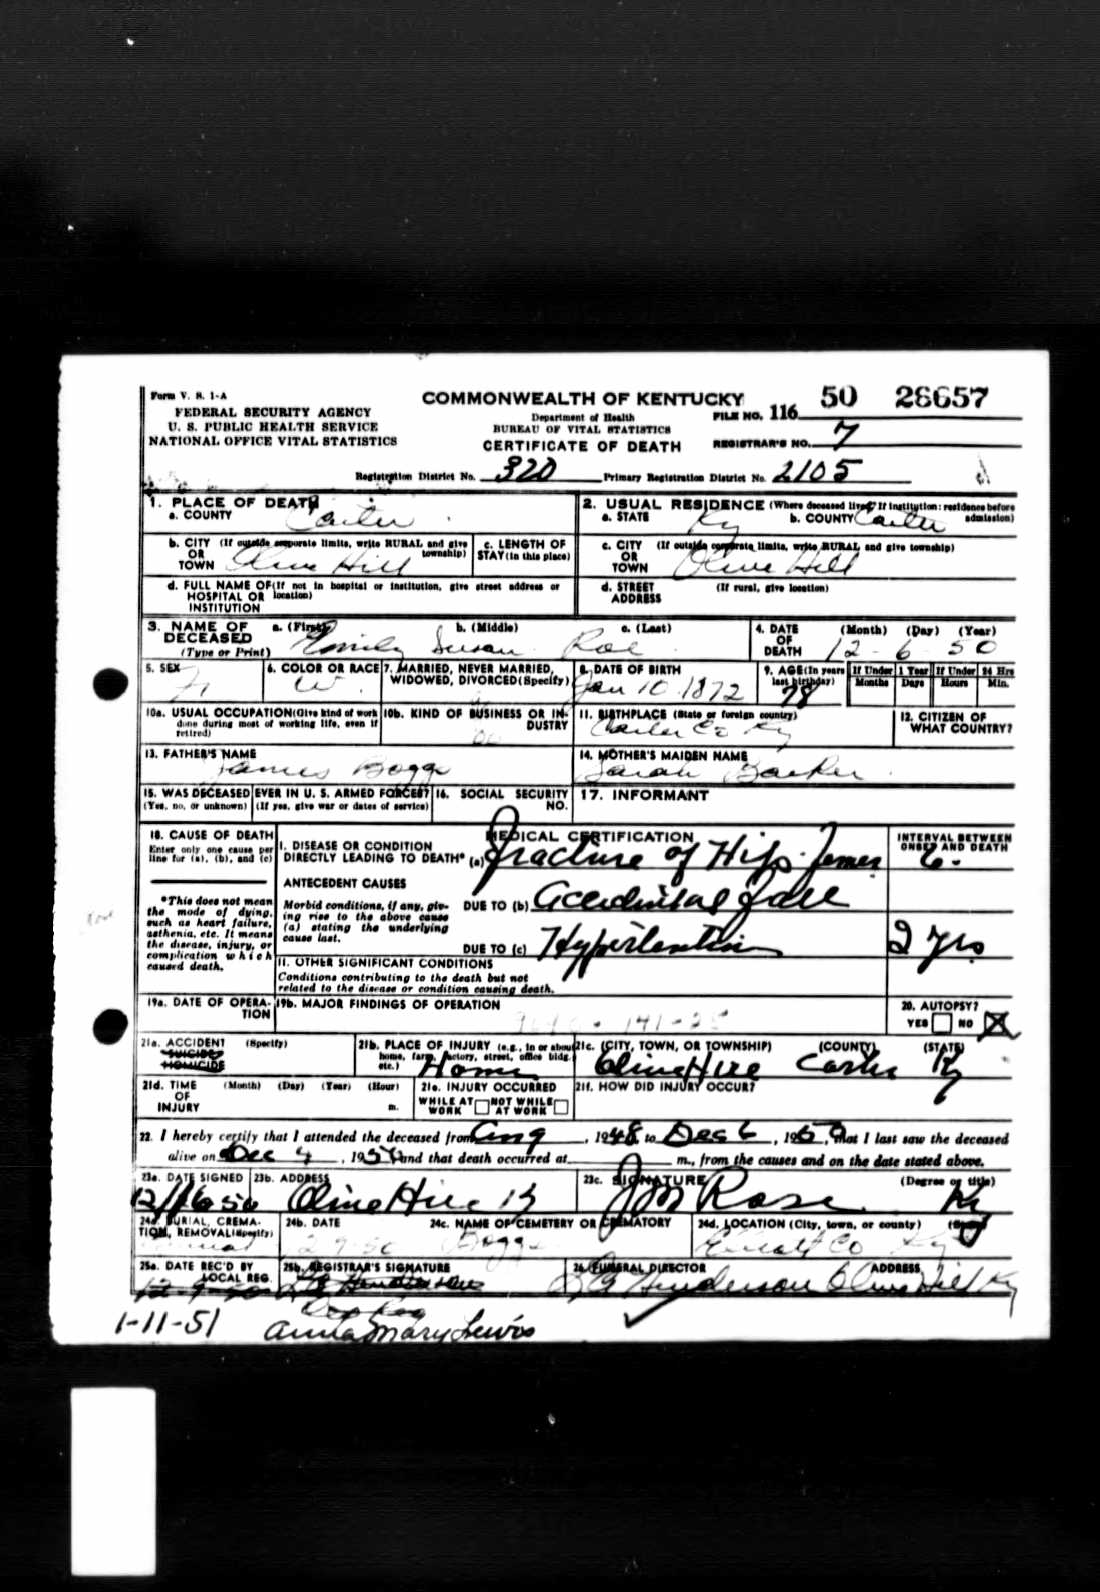 Form V. S. 1-A
FEDERAL SECURITY AGENCY
U. S. PUBLIC HEALTH SERVICE
NATIONAL OFFICE VITAL STATISTICS
COMMONWEALTH OF KENTUCKY
Department of Health
BUREAU OF VITAL STATISTICS
CERTIFICATE OF DEATH
FILE NO. 116 50 26657
REGISTRAR'S NO. 7
Registration District No. 320 Primary Registration District No. 2105
1. PLACE OF DEATH
a. COUNTY Carter
2. USUAL RESIDENCE (Where deceased lived. If institution: residence before admission)
a. STATE Ky b. COUNTY Carter
b. CITY (If outside corporate limits, write RURAL and give township) OR TOWN Olive Hill
c. LENGTH OF STAY (in this place)
c. CITY (If outside corporate limits, write RURAL and give township) OR TOWN Olive Hill
d. FULL NAME OF (If not in hospital or institution, give street address or location) HOSPITAL OR INSTITUTION
d. STREET ADDRESS (If rural, give location)
3. NAME OF DECEASED (Type or Print) a. (First) Emily b. (Middle) Susan c. (Last) Roe
4. DATE OF DEATH (Month) (Day) (Year) 12-6-50
5. SEX F
6. COLOR OR RACE W
7. MARRIED, NEVER MARRIED, WIDOWED, DIVORCED (Specify)
8. DATE OF BIRTH Jan 10. 1872
9. AGE (In years last birthday) 78
If Under 1 Year Months Days
If Under 24 Hrs Hours Min.
10a. USUAL OCCUPATION (Give kind of work done during most of working life, even if retired)
10b. KIND OF BUSINESS OR INDUSTRY
11. BIRTHPLACE (State or foreign country) Carter Co Ky
12. CITIZEN OF WHAT COUNTRY?
13. FATHER'S NAME James Boggs
14. MOTHER'S MAIDEN NAME Sarah Barker
15. WAS DECEASED EVER IN U. S. ARMED FORCES? (Yes, no, or unknown) (If yes, give war or dates of service)
16. SOCIAL SECURITY NO.
17. INFORMANT
18. CAUSE OF DEATH
Enter only one cause per line for (a), (b), and (c)
*This does not mean the mode of dying, such as heart failure, asthenia, etc. It means the disease, injury, or complication which caused death.
MEDICAL CERTIFICATION
INTERVAL BETWEEN ONSET AND DEATH
I. DISEASE OR CONDITION DIRECTLY LEADING TO DEATH* (a) Fracture of Hip. 6.
ANTECEDENT CAUSES
Morbid conditions, if any, giving rise to the above cause (a) stating the underlying cause last.
DUE TO (b) Accidental fall
DUE TO (c) Hypertention 2 yrs
II. OTHER SIGNIFICANT CONDITIONS
Conditions contributing to the death but not related to the disease or condition causing death.
19a. DATE OF OPERATION
19b. MAJOR FINDINGS OF OPERATION
20. AUTOPSY?
YES NO X
21a. ACCIDENT (Specify)
SUICIDE
HOMICIDE
21b. PLACE OF INJURY (e.g., in or about home, farm, factory, street, office bldg. etc.) Home
21c. (CITY, TOWN, OR TOWNSHIP) (COUNTY) (STATE)
Olive Hill Carter Ky
21d. TIME OF INJURY (Month) (Day) (Year) (Hour) m.
21e. INJURY OCCURRED
WHILE AT WORK NOT WHILE AT WORK
21f. HOW DID INJURY OCCUR?
22. I hereby certify that I attended the deceased from Aug, 1948, to Dec 6, 1950, that I last saw the deceased
alive on Dec 4, 1950 and that death occurred at m., from the causes and on the date stated above.
23a. DATE SIGNED
23b. ADDRESS Olive Hill K
23c. SIGNATURE (Degree or title)
J M Rose
24a. BURIAL, CREMATION, REMOVAL (Specify) Burial
24b. DATE
24c. NAME OF CEMETERY OR CREMATORY Boggs
24d. LOCATION (City, town, or county) (State) Elliott Co Ky
25a. DATE REC'D BY LOCAL REG. 12-9-50
25b. REGISTRAR'S SIGNATURE
26. FUNERAL DIRECTOR ADDRESS
Henderson Olive Hill Ky
1-11-51
Anna Mary Lewis